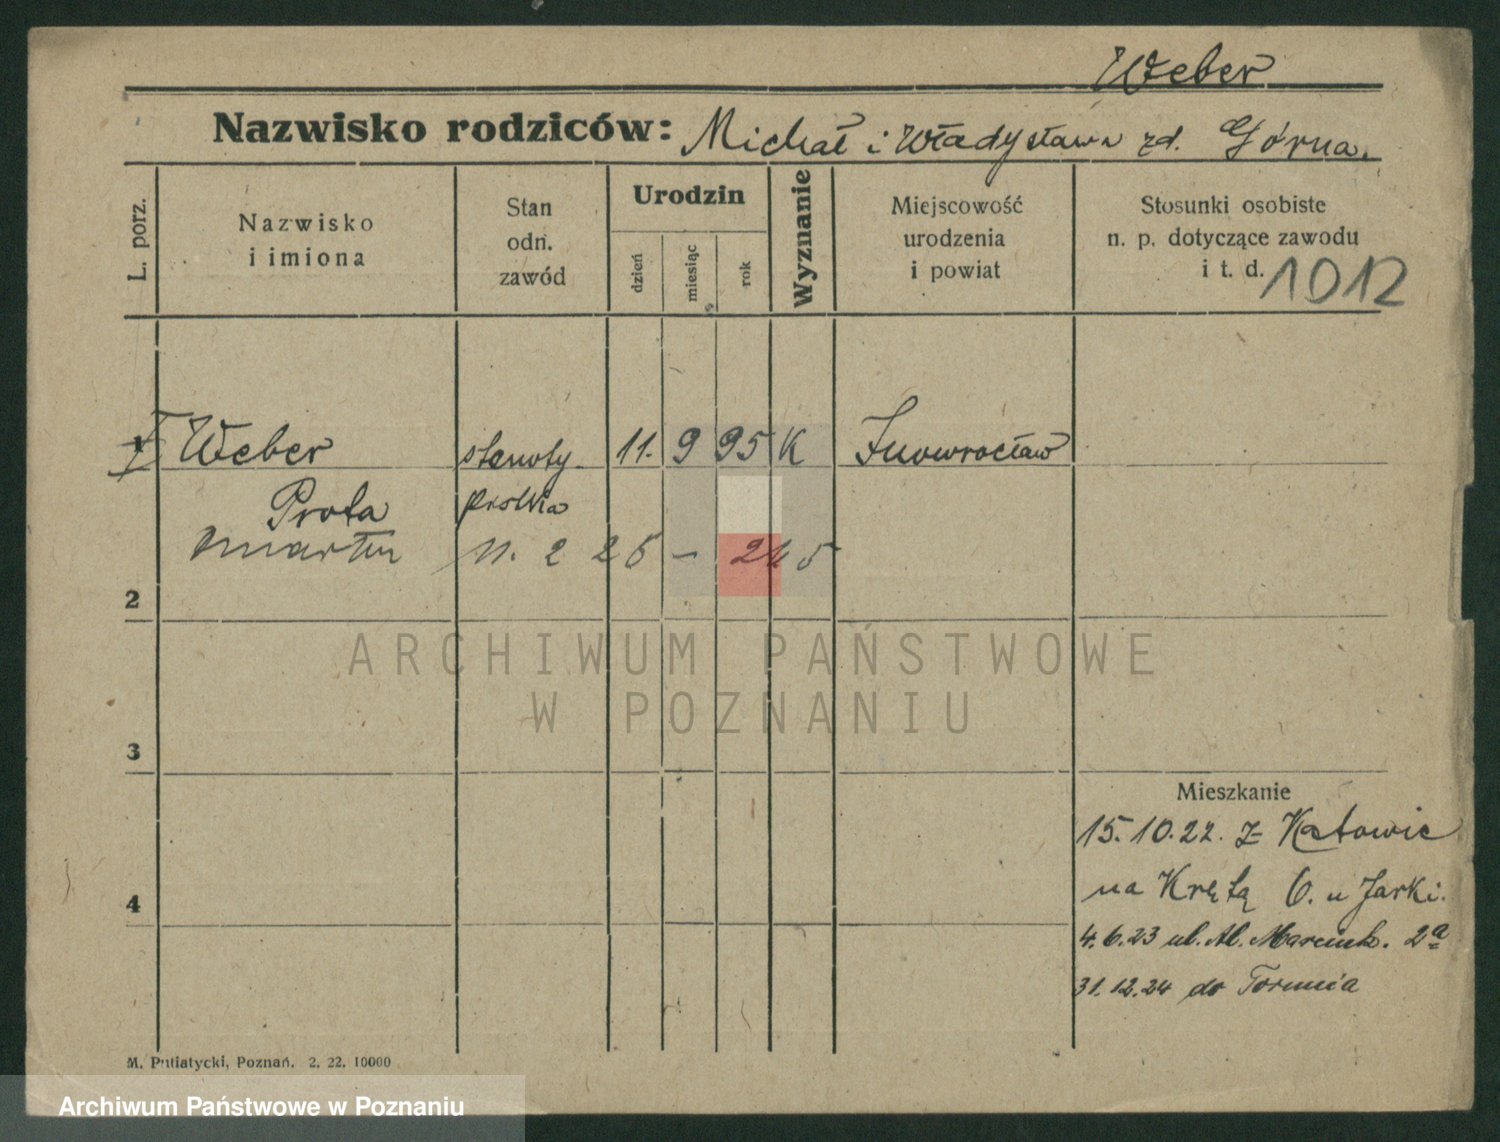 Weber
Nazwisko rodziców: Michał i Władysława zd. Górna.
L. porz.
Nazwisko
i imiona
Stan
odn.
zawód
Urodzin
dzień
miesiąc
rok
Wyznanie
Miejscowość
urodzenia
i powiat
Stosunki osobiste
n. p. dotyczące zawodu
i t. d. 1012
1 Weber stenoty 11. 9 95 K Inowrocław
pistka
2
3
4
Mieszkanie
15.10.22. z Katowic
na Krętą 6. u Jarki.
4.6.23 ul. Al. Marcink. 2a
31.12.24 do Torunia
M. Putiatycki, Poznań. 2. 22. 10000
ARCHIWUM PAŃSTWOWE
W POZNANIU
Archiwum Państwowe w Poznaniu